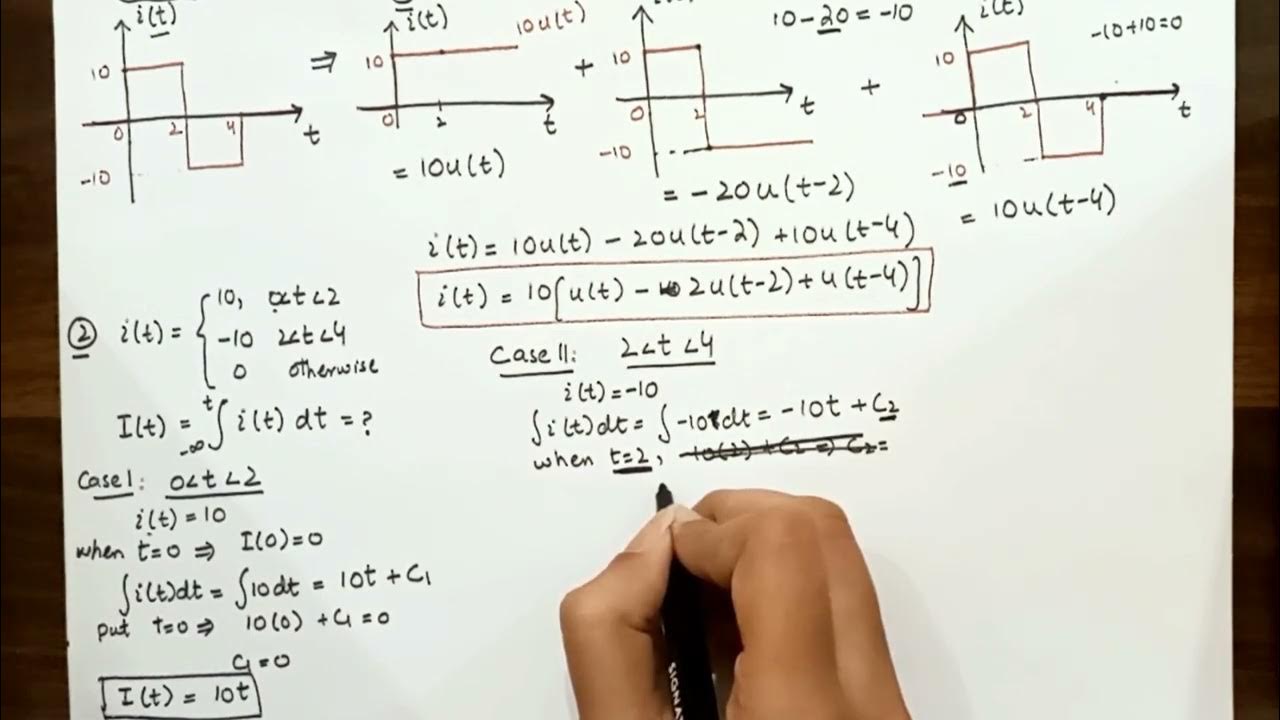 i(t)
10
0
2
4
t
-10
⇒
i(t)
10u(t)
10
0
2
t
= 10u(t)
+
10
0
2
t
-10
10-20 = -10
= -20u(t-2)
+
i(t)
-10+10=0
10
0
2
4
t
-10
= 10u(t-4)
i(t) = 10u(t) - 20u(t-2) + 10u(t-4)
i(t) = 10[u(t) - 2u(t-2) + u(t-4)]
② i(t) = { 10, 0<t<2
-10 2<t<4
0 otherwise
I(t) = ∫_{-∞}^{t} i(t) dt = ?
Case I: 0<t<2
i(t) = 10
when t=0 ⇒ I(0)=0
∫i(t)dt = ∫10dt = 10t + C₁
put t=0 ⇒ 10(0) + C₁ = 0
C₁ = 0
I(t) = 10t
Case II: 2<t<4
i(t) = -10
∫i(t)dt = ∫-10dt = -10t + C₂
when t=2, -10(2) + C₂ ⇒ C₂ =
SIGNA